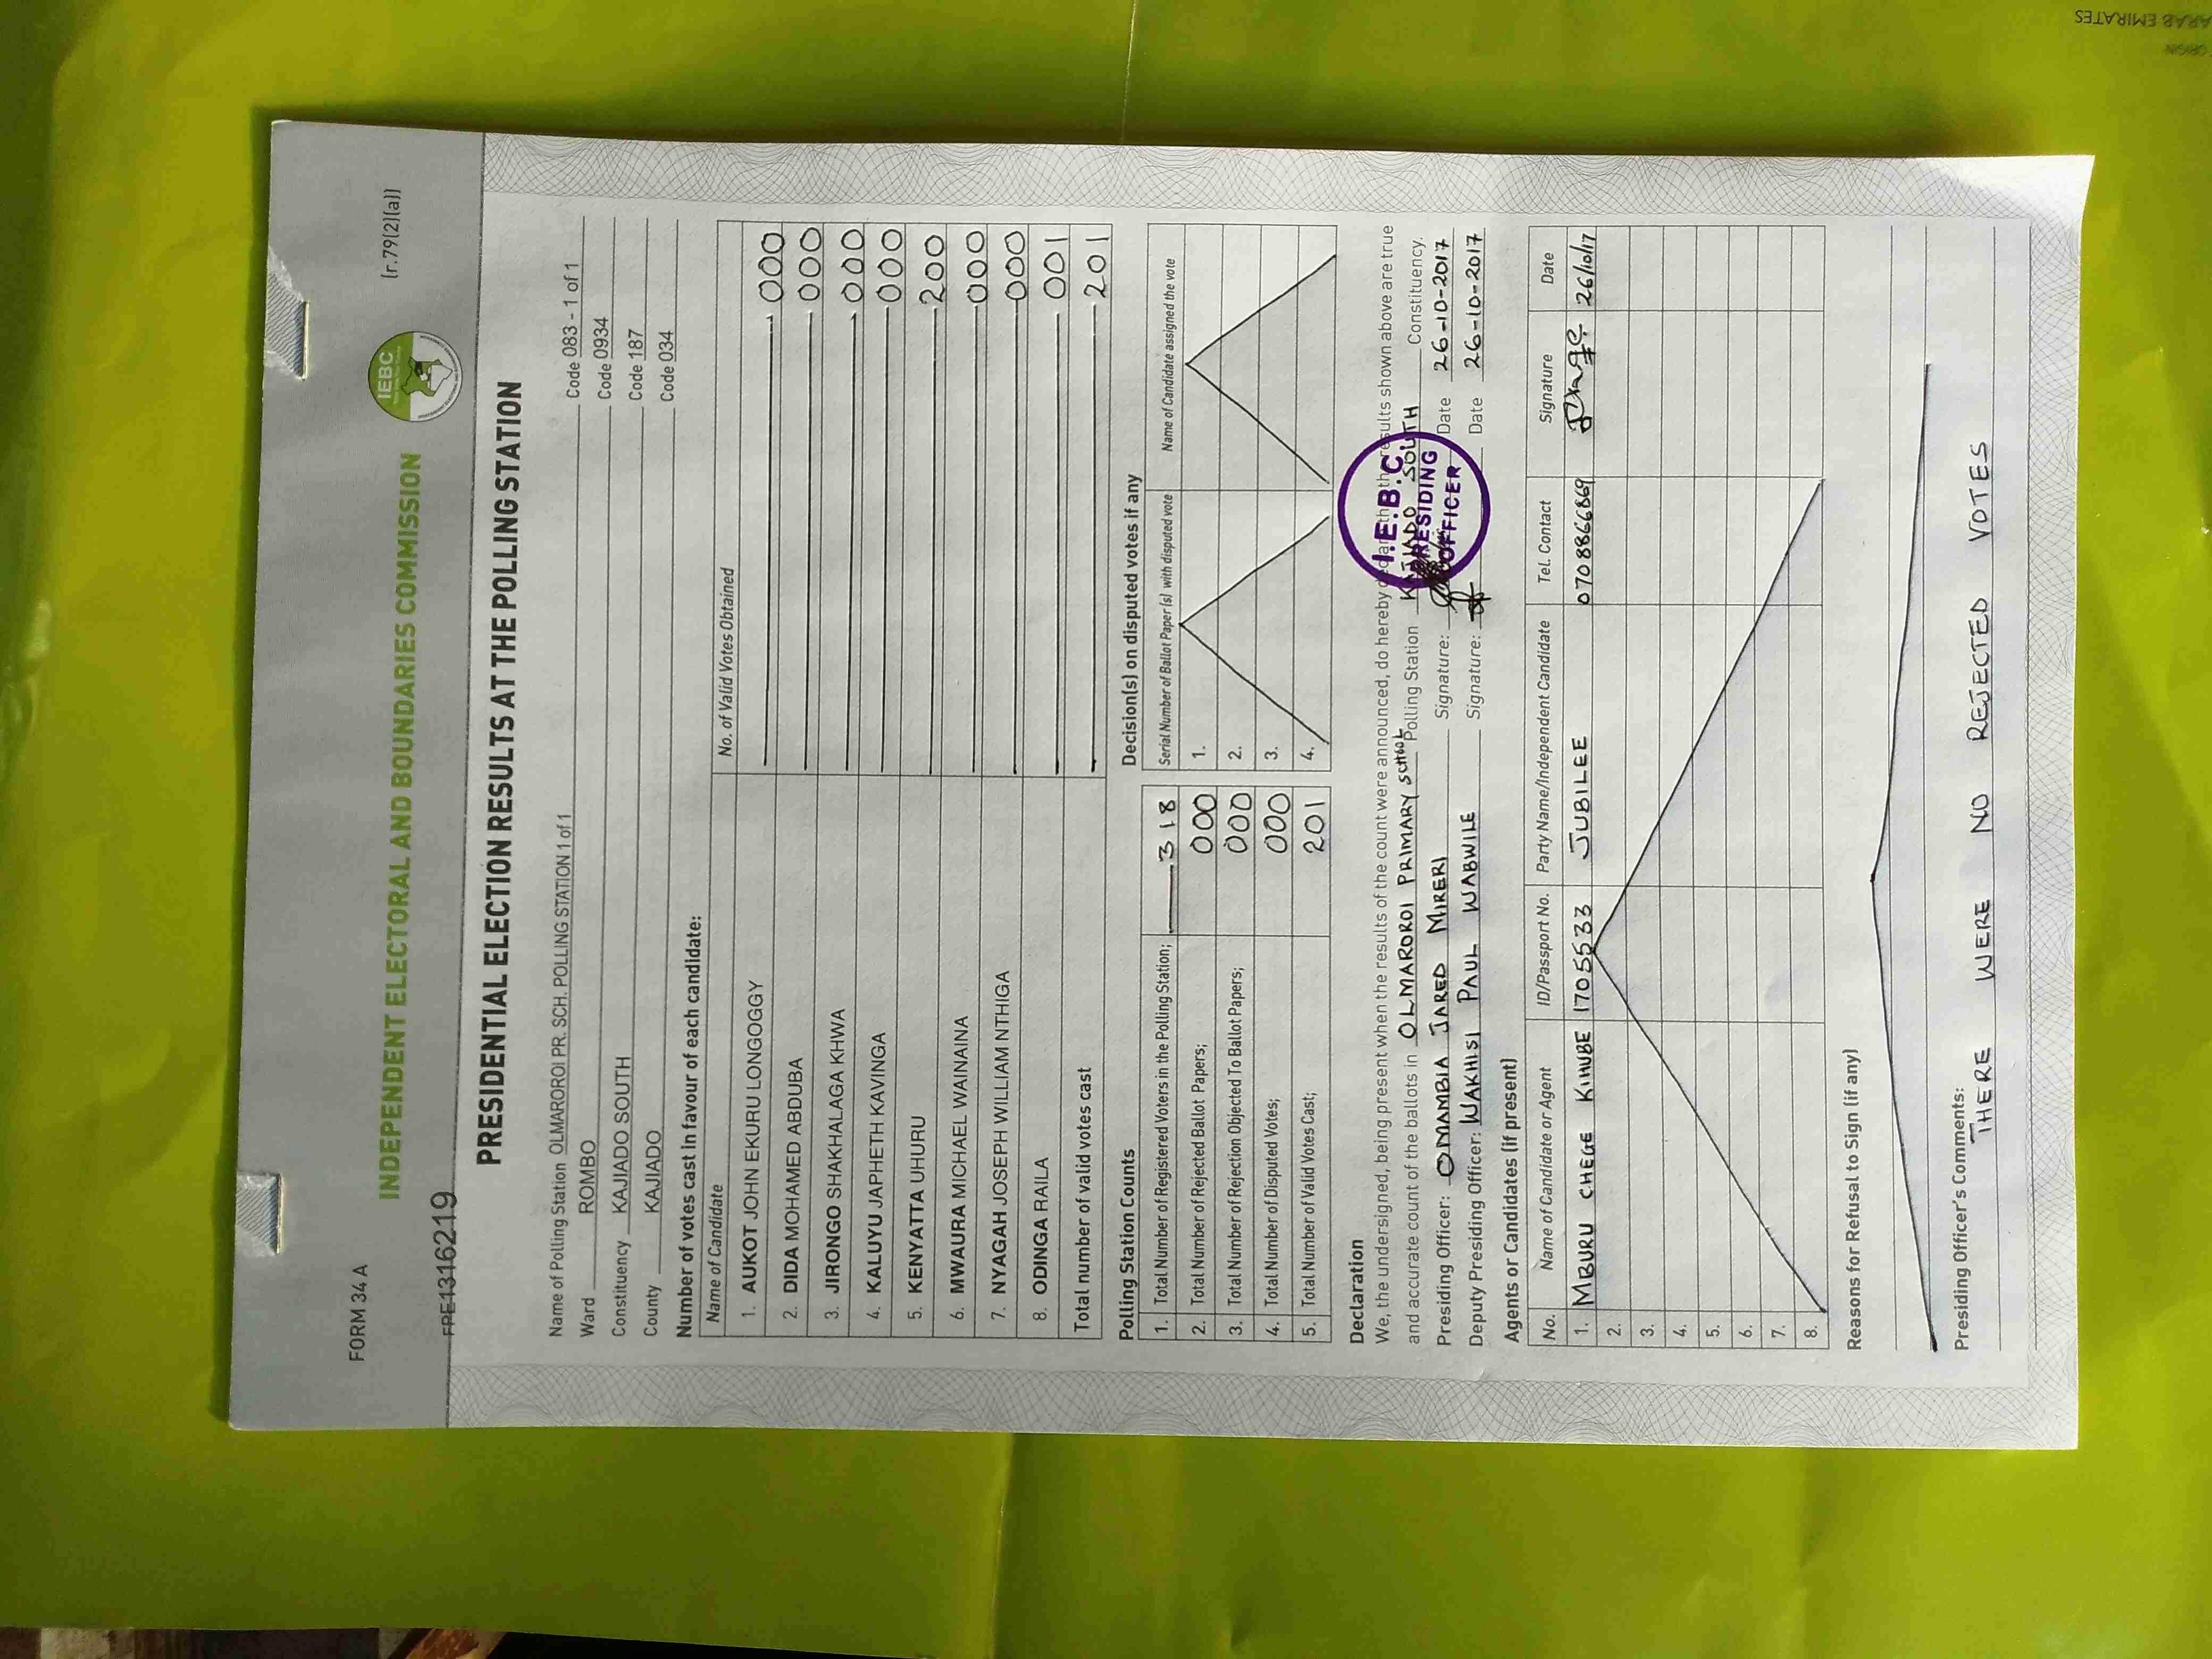 FORM 34 A
(r.79(2)(a))
INDEPENDENT ELECTORAL AND BOUNDARIES COMMISSION
IEBC
FPE1316219
PRESIDENTIAL ELECTION RESULTS AT THE POLLING STATION
Name of Polling Station OLMAROROI PR. SCH. POLLING STATION 1 of 1 Code 083 - 1 of 1
Ward ROMBO Code 0934
Constituency KAJIADO SOUTH Code 187
County KAJIADO Code 034
Number of votes cast in favour of each candidate:
Name of Candidate No. of Valid Votes Obtained
1. AUKOT JOHN EKURU LONGOGGY 000
2. DIDA MOHAMED ABDUBA 000
3. JIRONGO SHAKHALAGA KHWA 000
4. KALUYU JAPHETH KAVINGA 000
5. KENYATTA UHURU 200
6. MWAURA MICHAEL WAINAINA 000
7. NYAGAH JOSEPH WILLIAM NTHIGA 000
8. ODINGA RAILA 001
Total number of valid votes cast 201
Polling Station Counts
1. Total Number of Registered Voters in the Polling Station; 318
2. Total Number of Rejected Ballot Papers; 000
3. Total Number of Rejection Objected To Ballot Papers; 000
4. Total Number of Disputed Votes; 000
5. Total Number of Valid Votes Cast; 201
Decision(s) on disputed votes if any
Serial Number of Ballot Paper(s) with disputed vote Name of Candidate assigned the vote
1.
2.
3.
4.
Declaration
We, the undersigned, being present when the results of the count were announced, do hereby declare that the results shown above are true
and accurate count of the ballots in OLMAROROI PRIMARY SCHOOL Polling Station KAJIADO SOUTH Constituency.
Presiding Officer: OMAMBIA JARED MIRERI Signature: Date 26-10-2017
Deputy Presiding Officer: WAKHISI PAUL WABWILE Signature: Date 26-10-2017
I.E.B.C.
PRESIDING
OFFICER
Agents or Candidates (if present)
No. Name of Candidate or Agent ID/Passport No. Party Name/Independent Candidate Tel. Contact Signature Date
1. MBURU CHEGE KINUBE 17055533 JUBILEE 0708866869 26/10/17
2.
3.
4.
5.
6.
7.
8.
Reasons for Refusal to Sign (if any)
Presiding Officer's Comments:
THERE WERE NO REJECTED VOTES
ORIGIN
ARAB EMIRATES